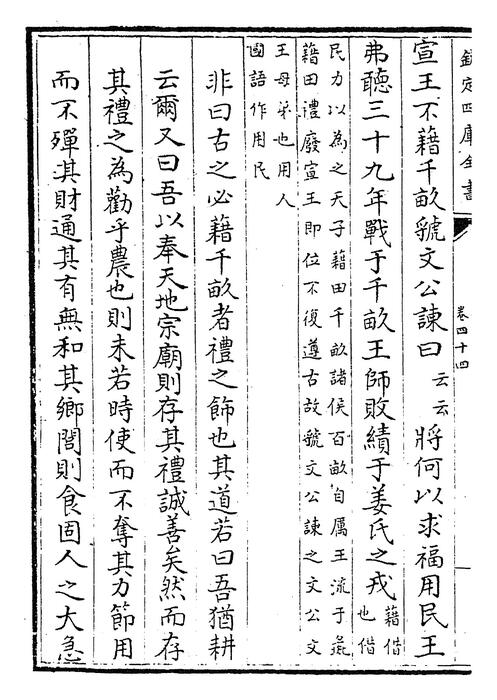 欽定四庫全書
卷四十四
宣王不藉千畝虢文公諫曰云云將何以求福用民王
弗聽三十九年戰于千畝王師敗績于姜氏之戎藉借也借
民力以為之天子藉田千畝諸侯百畝自厲王流于彘
藉田禮廢宣王即位不復遵古故虢文公諫之文公文
王母弟也用人
國語作用民
非曰古之必藉千畝者禮之飾也其道若曰吾猶耕
云爾又曰吾以奉天地宗廟則存其禮誠善矣然而存
其禮之為勸乎農也則未若時使而不奪其力節用
而不殫其財通其有無和其鄉閭則食固人之大急